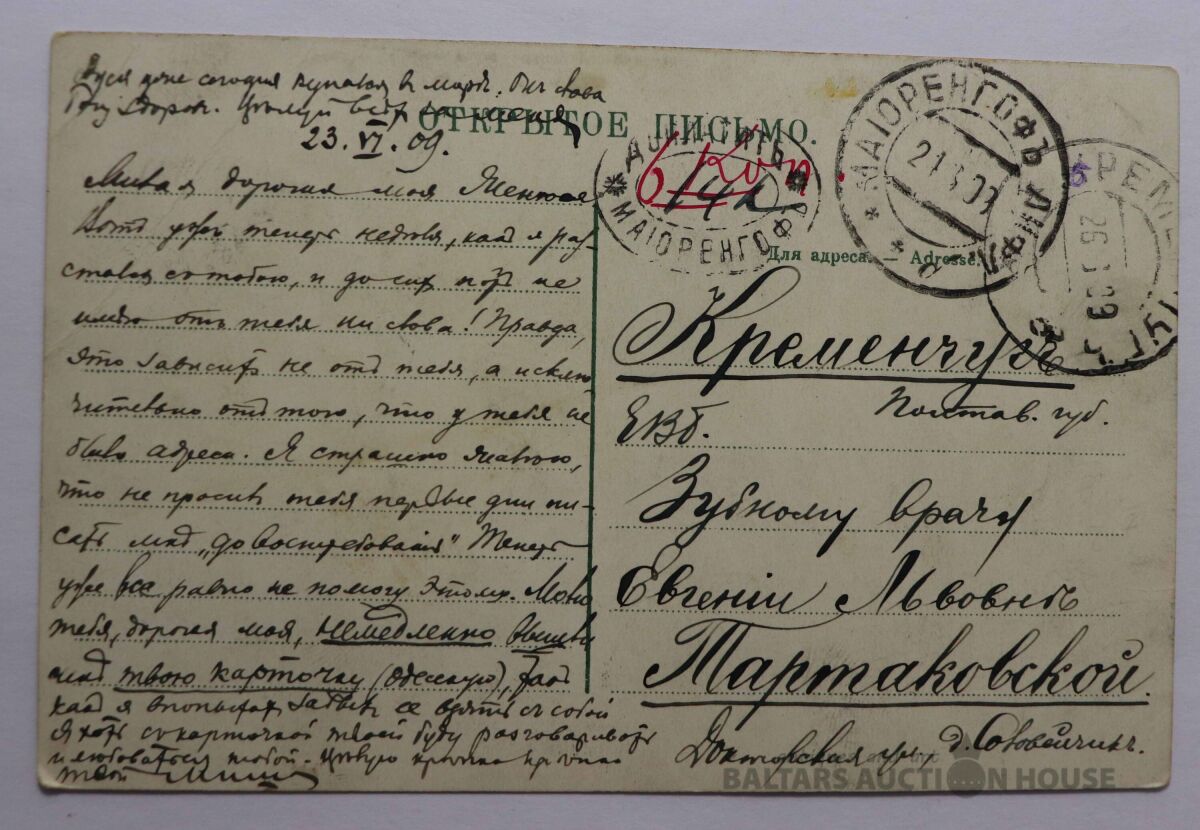 сегодня купался в морѣ.
здоров. Цѣлуй всѣх
23.VI.09.
ОТКРЫТОЕ ПИСЬМО.
Милая, дорогая моя Женюся
Вотъ уже теперь недѣля, какъ я раз-
стался съ тобою, и до сих поръ не
имѣю отъ тебя ни слова! Правда,
это зависитъ не отъ тебя, а исклю-
чительно отъ того, что у тебя не
было адреса. Я страшно жалѣю,
что не просил тебя первые дни пи-
сать мнѣ „до востребованія“ Теперь
уже все равно не помогу этому. Молю
тебя, дорогая моя, немедленно вышли
мнѣ твою карточку (одесскую), такъ
какъ я впопыхах забыл ее взять съ собой
Я хоть съ карточкой твоей буду разговаривать
и любоваться тобой. Цѣлую крѣпко
твой Миша
ДОПЛАТИТЬ
МАІОРЕНГОФЪ
6 Коп.
МАІОРЕНГОФЪ ЛИФЛ.
КРЕМЕ
Для адреса. — Adresse.
Кременчугъ
Полтав. губ.
ЕВБ.
Зубному врачу
Евгеніи Львовнѣ
Тартаковской.
Докторская ул. д.
BALTARS AUCTION HOUSE